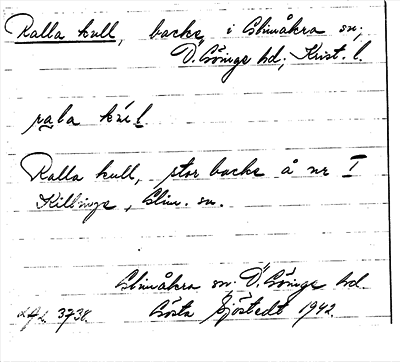 Ralla kull, backe, i Glimåkra sn,
Ö. Göinge hd; Krist. l.
rala kúl.
Ralla kull, stor backe å nr I
Killinge, Glim. sn.
Glimåkra sn. Ö. Göinge hd.
3738. Gösta Sjöstedt 1942.